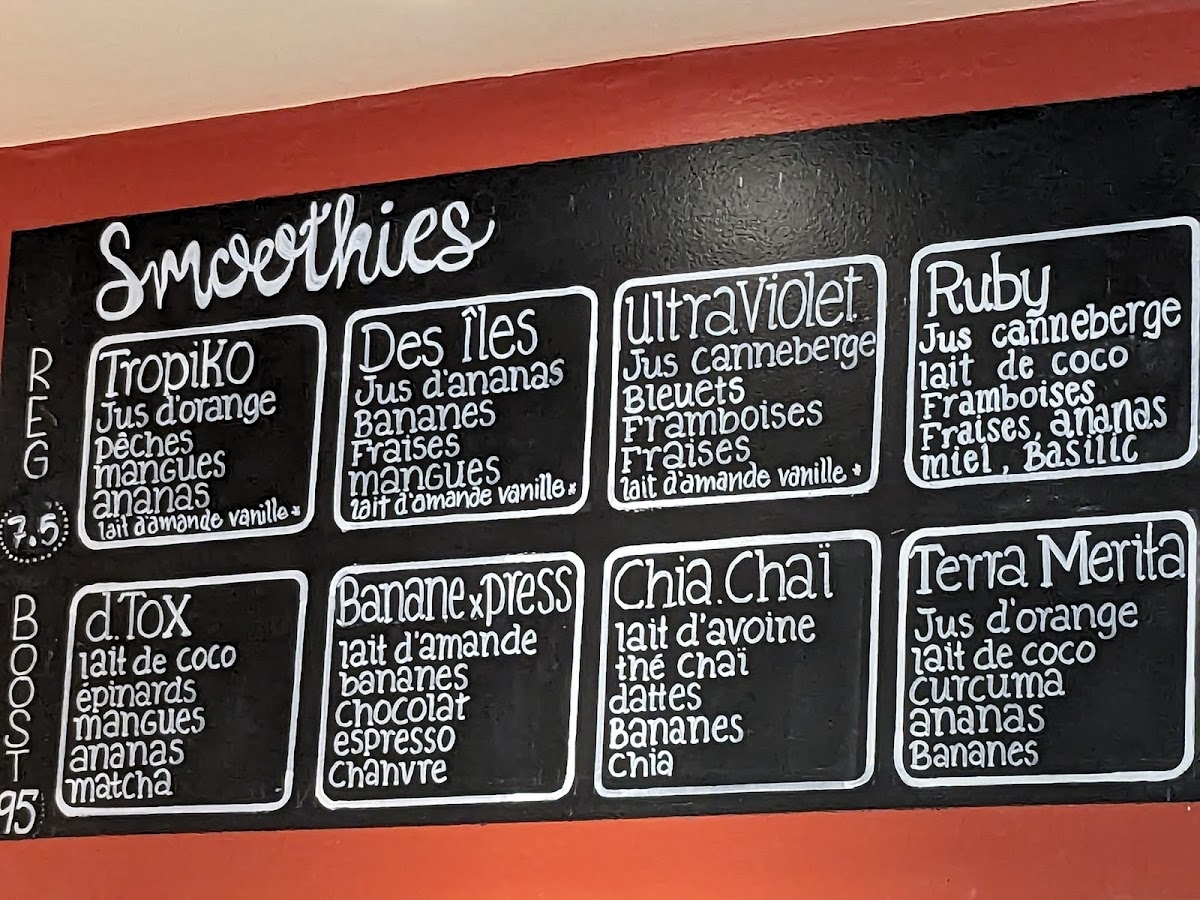 Smoothies
REG
7.5
Tropiko
Jus d'orange
pêches
mangues
ananas
lait d'amande vanille*
Des Îles
Jus d'ananas
Bananes
Fraises
mangues
lait d'amande vanille*
UltraViolet
Jus canneberge
Bleuets
Framboises
Fraises
lait d'amande vanille*
Ruby
Jus canneberge
lait de coco
Framboises
Fraises, ananas
miel, Basilic
BOOST
95
d.Tox
lait de coco
épinards
mangues
ananas
matcha
Banane xpress
lait d'amande
bananes
chocolat
espresso
Chanvre
Chia.Chaï
lait d'avoine
thé chaï
dattes
Bananes
Chia
Terra Merita
Jus d'orange
lait de coco
curcuma
ananas
Bananes